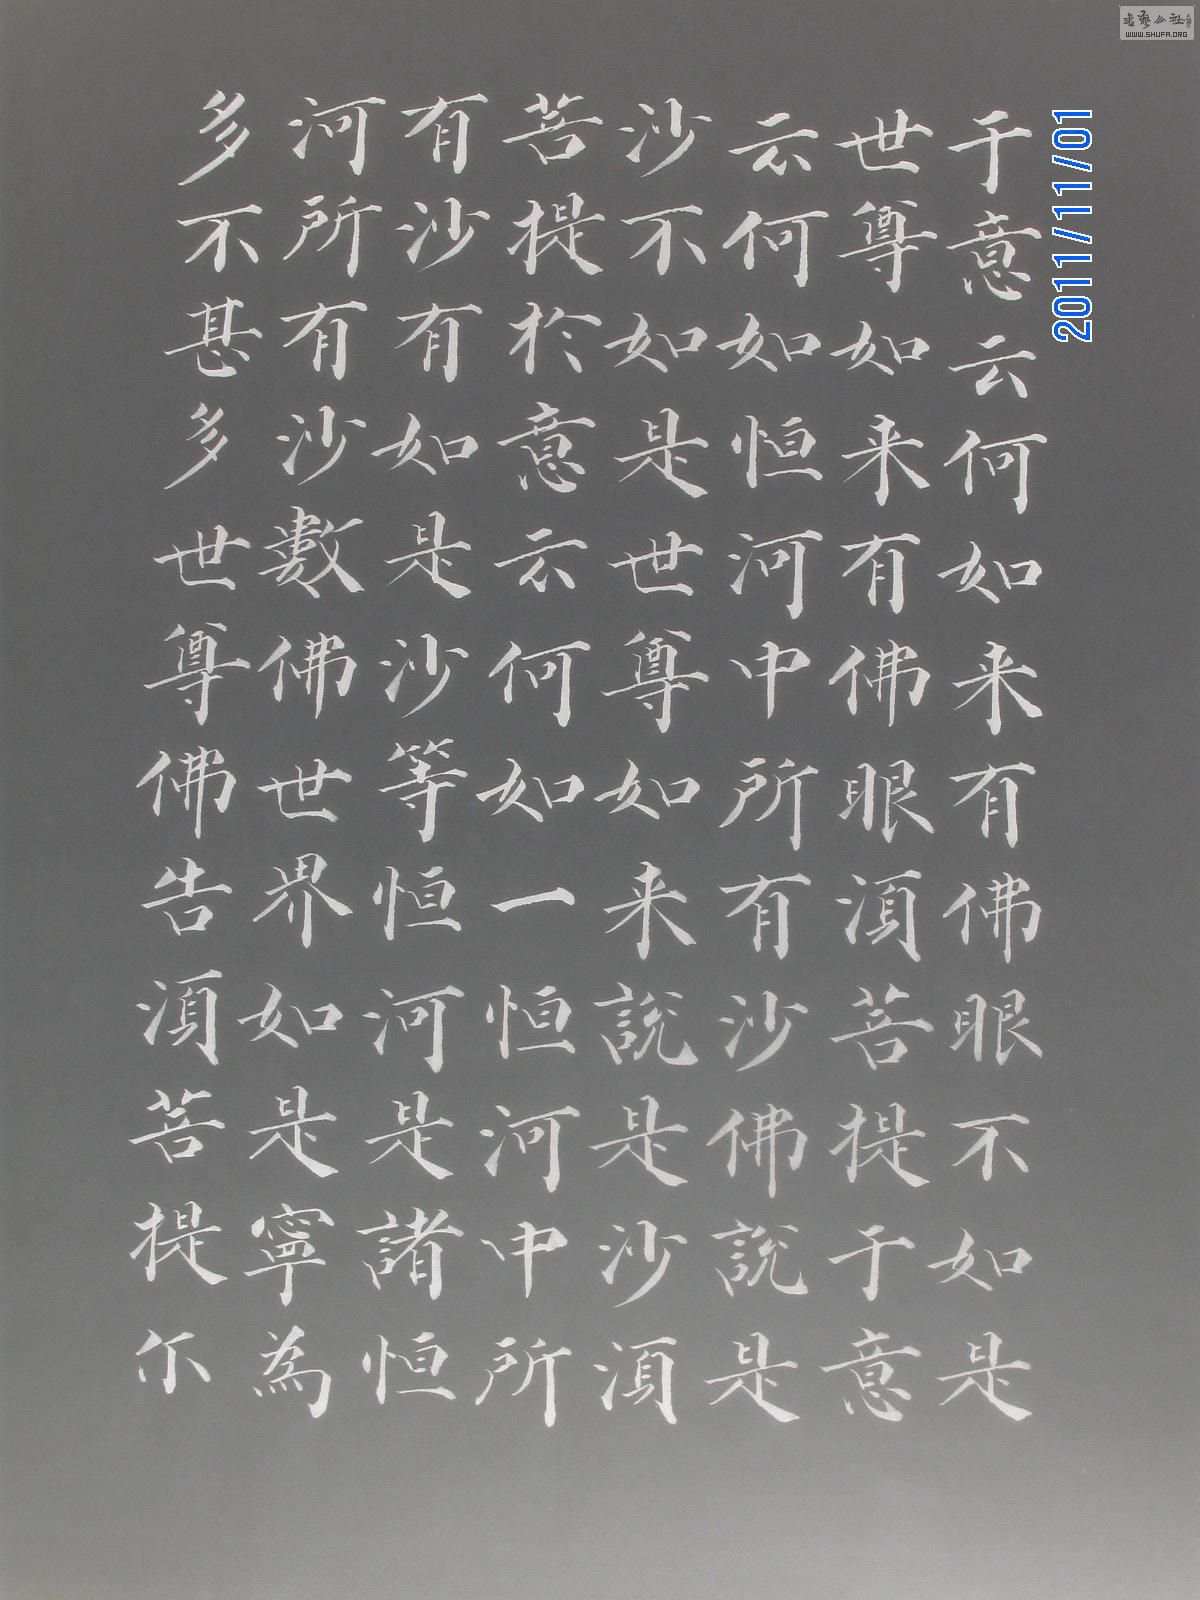 于意云何如来有佛眼不如是
世尊如来有佛眼須菩提于意
云何如恒河中所有沙佛說是
沙不如是世尊如来說是沙須
菩提於意云何如一恒河中所
有沙有如是沙等恒河是諸恒
河所有沙數佛世界如是寧為
多不甚多世尊佛告須菩提尓
2011/11/01
書藝公社
WWW.SHUFA.ORG